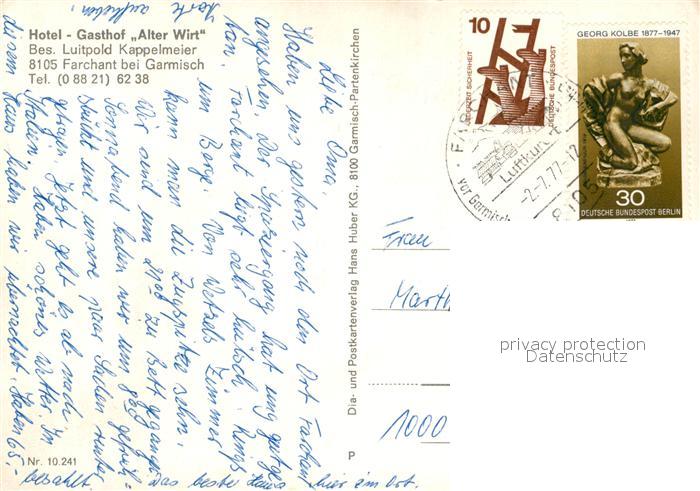 Hotel - Gasthof „Alter Wirt"
Bes. Luitpold Kappelmeier
8105 Farchant bei Garmisch
Tel. (0 88 21) 62 38
Liebe Oma,
Haben uns gestern noch den Ort Farchant
angesehen. Der Spaziergang hat uns gutge-
tan. Farchant liegt sehr hübsch. Rings-
um Berge. Von Wetzels Zimmer
kann man die Zugspitze sehn.
Wir sind um 21 00 zu Bett gegangen.
Sonnabend haben wir um 8 00 gefrüh-
stückt und unsere paar Sachen runter
getragen. Jetzt geht es ab nach
Italien. Haben schönes Wetter. In
diesem Haus haben wir übernachtet. Haben 65,-
bezahlt. Das beste Haus hier im Ort.
Karte aufheben.
Nr. 10.241
Dia- und Postkartenverlag Hans Huber KG., 8100 Garmisch-Partenkirchen
P
10
JEDERZEIT SICHERHEIT
DEUTSCHE BUNDESPOST
GEORG KOLBE 1877-1947
30
DEUTSCHE BUNDESPOST BERLIN
Luftkurort
-2.-7.77-12
vor Garmisch
8105
Frau
Marth
1000
privacy protection
Datenschutz